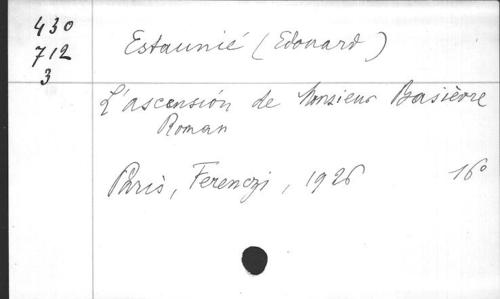 430
712
3
Estaunié (Edouard)
L'ascensión de Monsieur Baslèvre
Roman
Paris, Ferenczi, 1926 16°